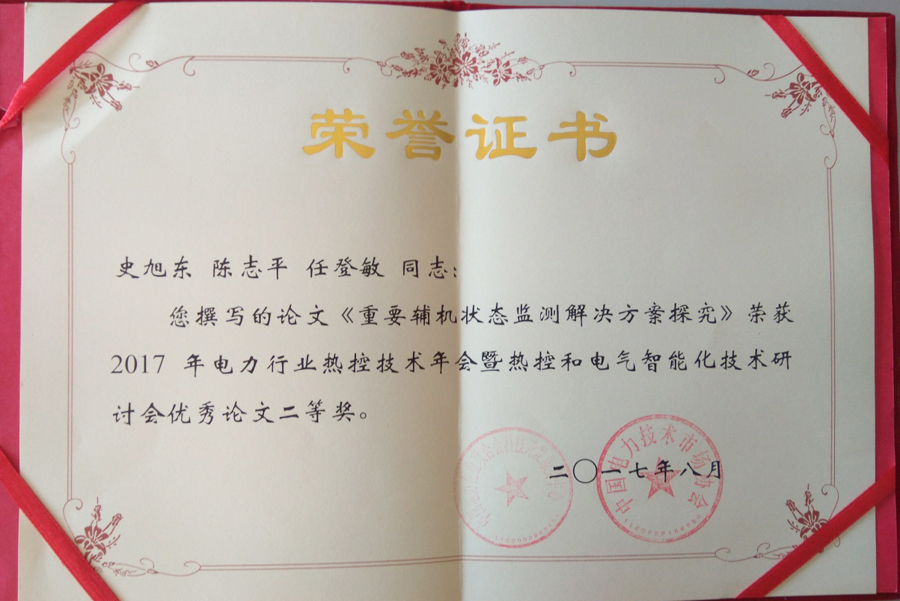 荣誉证书
史旭东 陈志平 任登敏 同志：
您撰写的论文《重要辅机状态监测解决方案探究》荣获
2017 年电力行业热控技术年会暨热控和电气智能化技术研
讨会优秀论文二等奖。
中国电力技术市场协会
二〇一七年八月